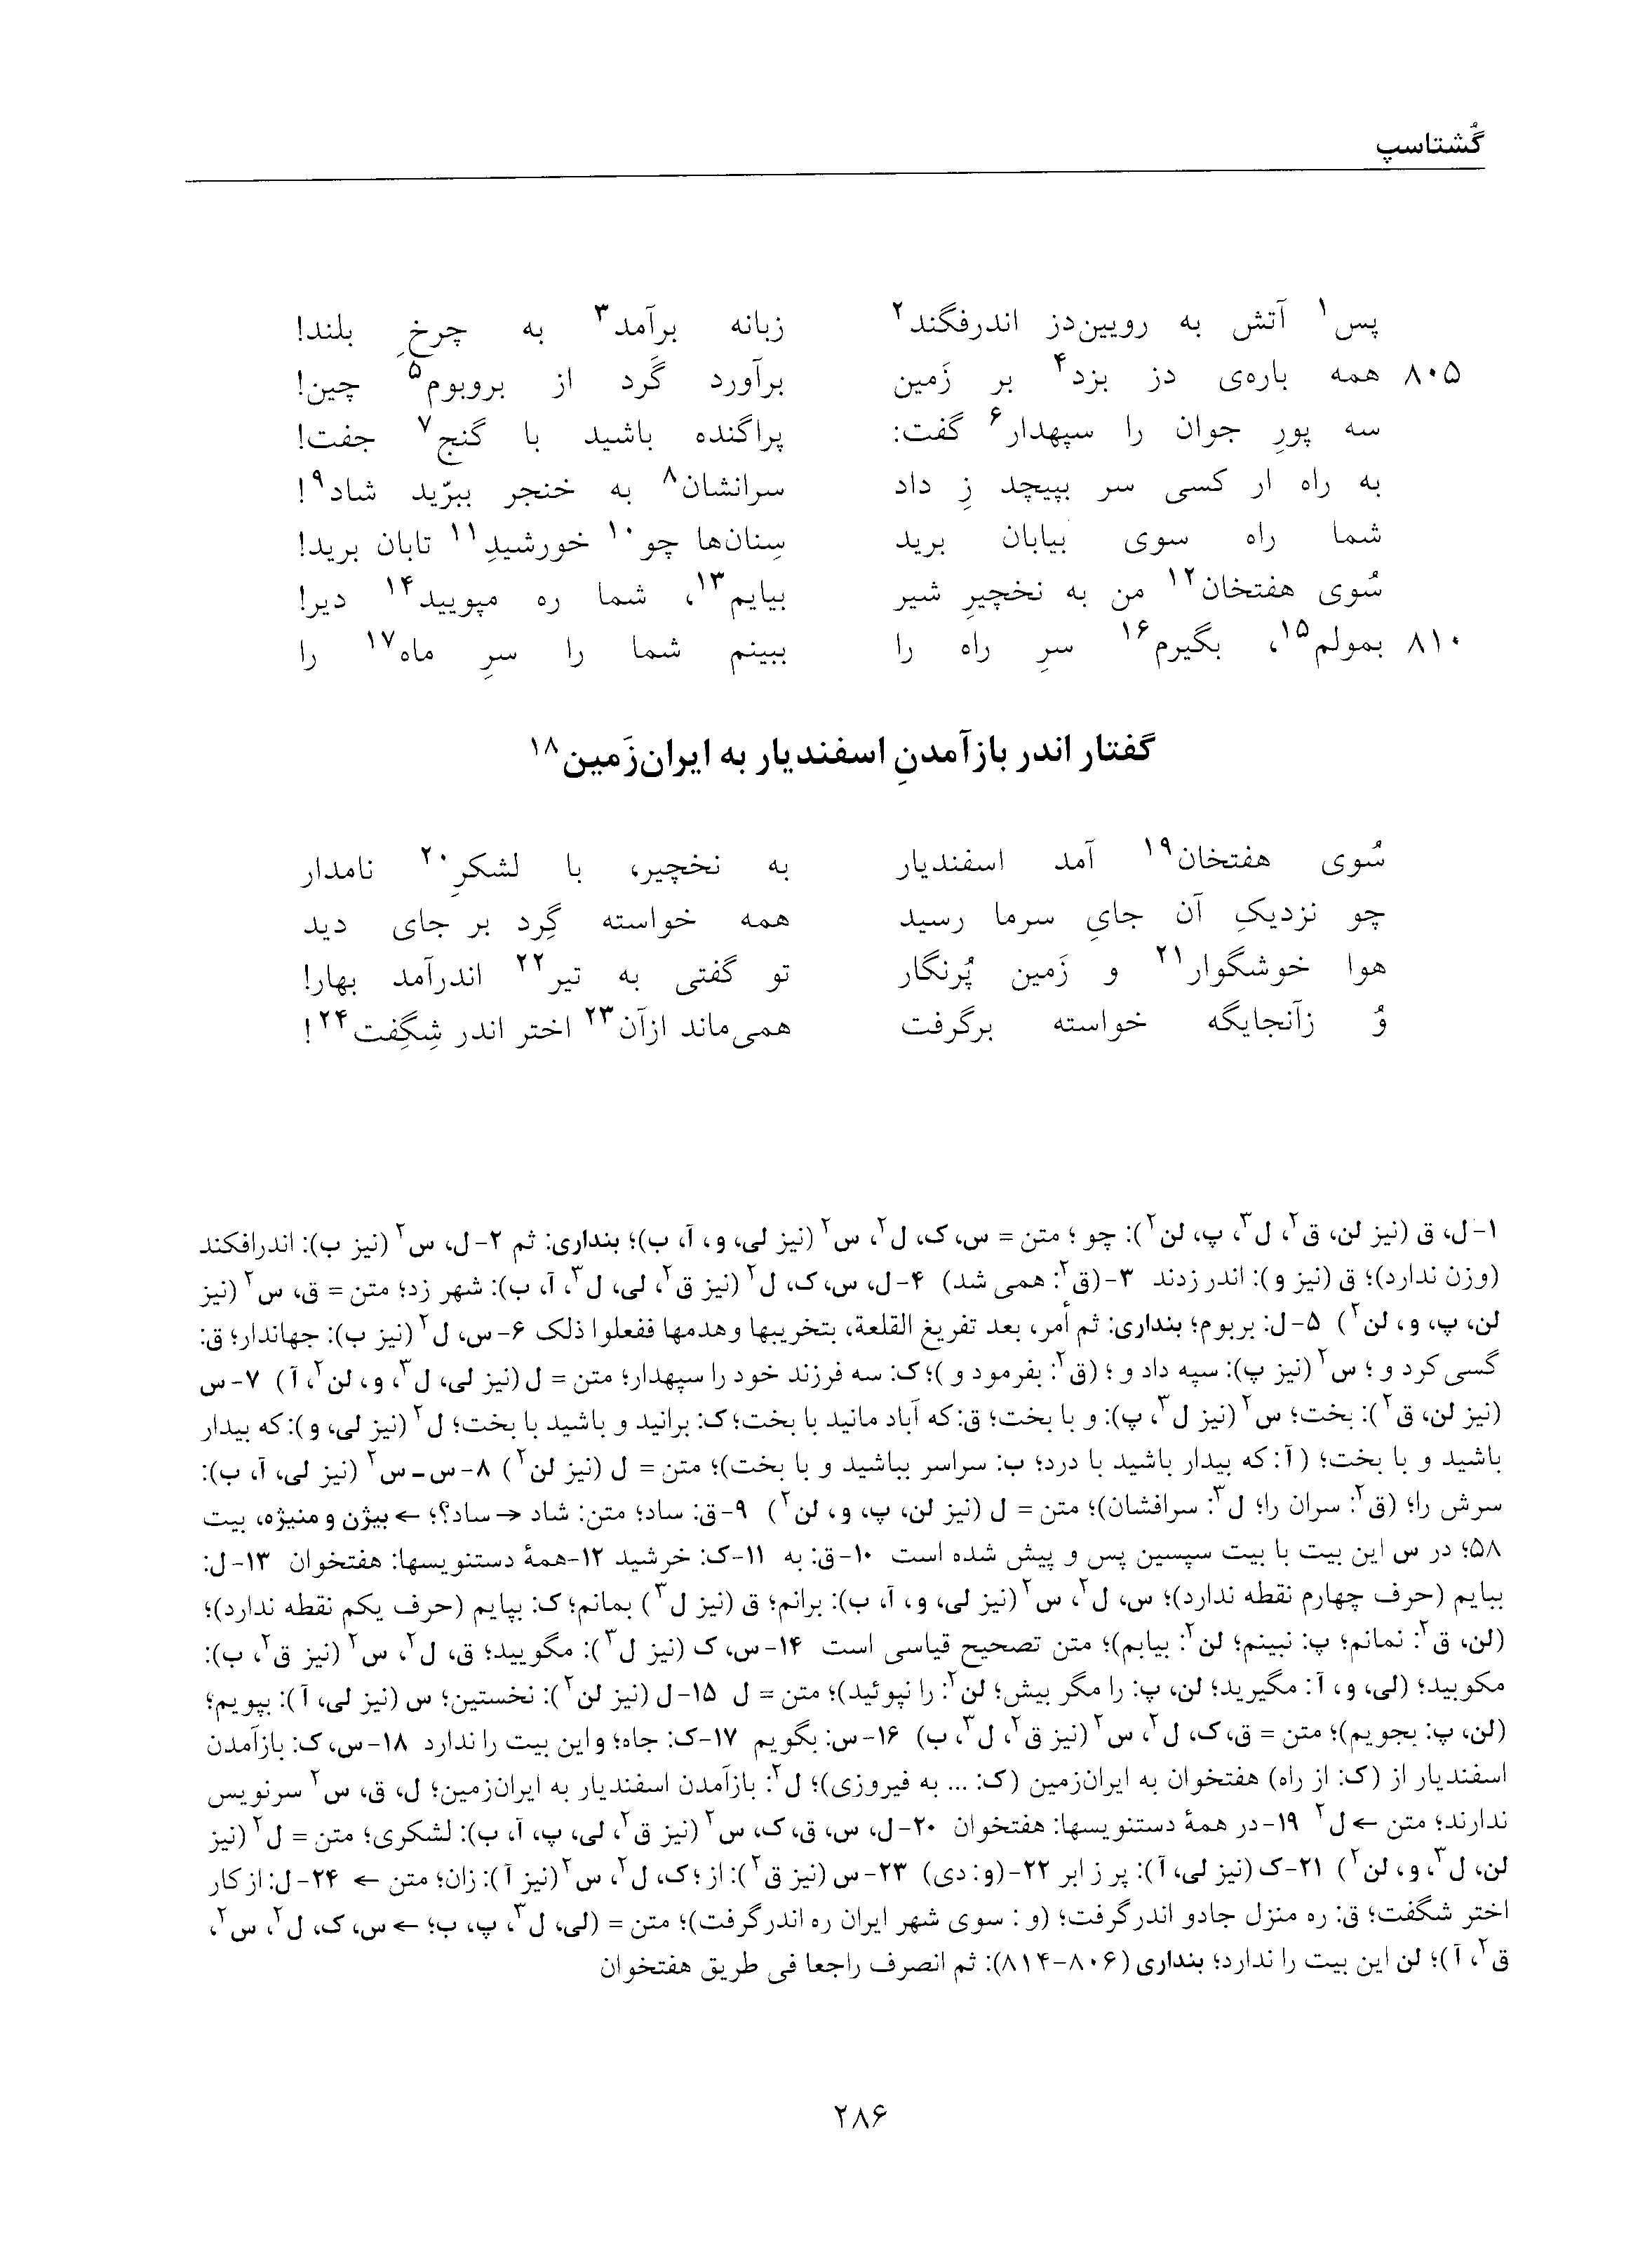 گُشتاسپ
پس۱ آتش به رویین‌دز اندرفگند۲ زبانه برآمد۳ به چرخِ بلند!
۸۰۵ همه باره‌ی دز بزد۴ بر زَمین برآورد گَرد از بروبوم۵ چین!
سه پورِ جوان را سپهدار۶ گفت: پراگنده باشید با گنج۷ جفت!
به راه ار کسی سر بپیچد زِ داد سرانشان۸ به خنجر ببرّید شاد۹!
شما راه سوی بیابان برید سِنان‌ها چو۱۰ خورشیدِ۱۱ تابان برید!
سُوی هفتخان۱۲ من به نخچیرِ شیر بیایم۱۳، شما ره مپویید۱۴ دیر!
۸۱۰ بمولم۱۵، بگیرم۱۶ سرِ راه را ببینم شما را سرِ ماه۱۷ را
گفتار اندر بازآمدنِ اسفندیار به ایران‌زَمین۱۸
سُوی هفتخان۱۹ آمد اسفندیار به نخچیر، با لشکرِ۲۰ نامدار
چو نزدیکِ آن جایِ سرما رسید همه خواسته گِرد بر جای دید
هوا خوشگوار۲۱ و زَمین پُرنگار تو گفتی به تیر۲۲ اندرآمد بهار!
وُ زآنجایگه خواسته برگرفت همی‌ماند ازآن۲۳ اختر اندر شِگِفت۲۴!
۱-ل، ق (نیز لن، ق۲، ل۳، پ، لن۲): چو ؛ متن = س، ک، ل۲، س۲ (نیز لی، و، آ، ب)؛ بنداری: ثم ۲-ل، س۲ (نیز ب): اندرافکند
(وزن ندارد)؛ ق (نیز و): اندر زدند ۳-(ق۲: همی شد) ۴-ل، س، ک، ل۲ (نیز ق۲، لی، ل۳، آ، ب): شهر زد؛ متن = ق، س۲ (نیز
لن، پ، و، لن۲) ۵-ل: بربوم؛ بنداری: ثم أمر، بعد تفریغ القلعة، بتخریبها وهدمها ففعلوا ذلک ۶-س، ل۲ (نیز ب): جهاندار؛ ق:
گسی کرد و ؛ س۲ (نیز پ): سپه داد و ؛ (ق۲: بفرمود و )؛ ک: سه فرزند خود را سپهدار؛ متن = ل (نیز لی، ل۳، و، لن۲، آ) ۷-س
(نیز لن، ق۲): بخت؛ س۲ (نیز ل۳، پ): و با بخت؛ ق: که آباد مانید با بخت؛ ک: برانید و باشید با بخت؛ ل۲ (نیز لی، و): که بیدار
باشید و با بخت؛ (آ: که بیدار باشید با درد؛ ب: سراسر بباشید و با بخت)؛ متن = ل (نیز لن۲) ۸-س-س۲ (نیز لی، آ، ب):
سرش را؛ (ق۲: سران را؛ ل۳: سرافشان)؛ متن = ل (نیز لن، پ، و، لن۲) ۹-ق: ساد؛ متن: شاد → ساد؟؛ ← بیژن و منیژه، بیت
۵۸؛ در س این بیت با بیت سپسین پس و پیش شده است ۱۰-ق: به ۱۱-ک: خرشید ۱۲-همهٔ دستنویسها: هفتخوان ۱۳-ل:
ببایم (حرف چهارم نقطه ندارد)؛ س، ل۲، س۲ (نیز لی، و، آ، ب): برانم؛ ق (نیز ل۳) بمانم؛ ک: بپایم (حرف یکم نقطه ندارد)؛
(لن، ق۲: نمانم؛ پ: نبینم؛ لن۲: بیابم)؛ متن تصحیح قیاسی است ۱۴-س، ک (نیز ل۳): مگویید؛ ق، ل۲، س۲ (نیز ق۲، ب):
مکوبید؛ (لی، و، آ: مگیرید؛ لن، پ: را مگر بیش؛ لن۲: را نپوئید)؛ متن = ل ۱۵-ل (نیز لن۲): نخستین؛ س (نیز لی، آ): بپویم؛
(لن، پ: بجویم)؛ متن = ق، ک، ل۲، س۲ (نیز ق۲، ل۳، ب) ۱۶-س: بگویم ۱۷-ک: جاه؛ و این بیت را ندارد ۱۸-س، ک: بازآمدن
اسفندیار از (ک: از راه) هفتخوان به ایران‌زمین (ک: ... به فیروزی)؛ ل۲: بازآمدن اسفندیار به ایران‌زمین؛ ل، ق، س۲ سرنویس
ندارند؛ متن ← ل۲ ۱۹-در همهٔ دستنویسها: هفتخوان ۲۰-ل، س، ق، ک، س۲ (نیز ق۲، لی، پ، آ، ب): لشکری؛ متن = ل۲ (نیز
لن، ل۳، و، لن۲) ۲۱-ک (نیز لی، آ): پر ز ابر ۲۲-(و: دی) ۲۳-س (نیز ق۲): از ؛ ک، ل۲، س۲ (نیز آ): زان؛ متن ← ۲۴-ل: از کار
اختر شگفت؛ ق: ره منزل جادو اندرگرفت؛ (و : سوی شهر ایران ره اندرگرفت)؛ متن = (لی، ل۳، پ، ب؛ ← س، ک، ل۲، س۲،
ق۲، آ)؛ لن این بیت را ندارد؛ بنداری (۸۰۶-۸۱۴): ثم انصرف راجعا فی طریق هفتخوان
۲۸۶